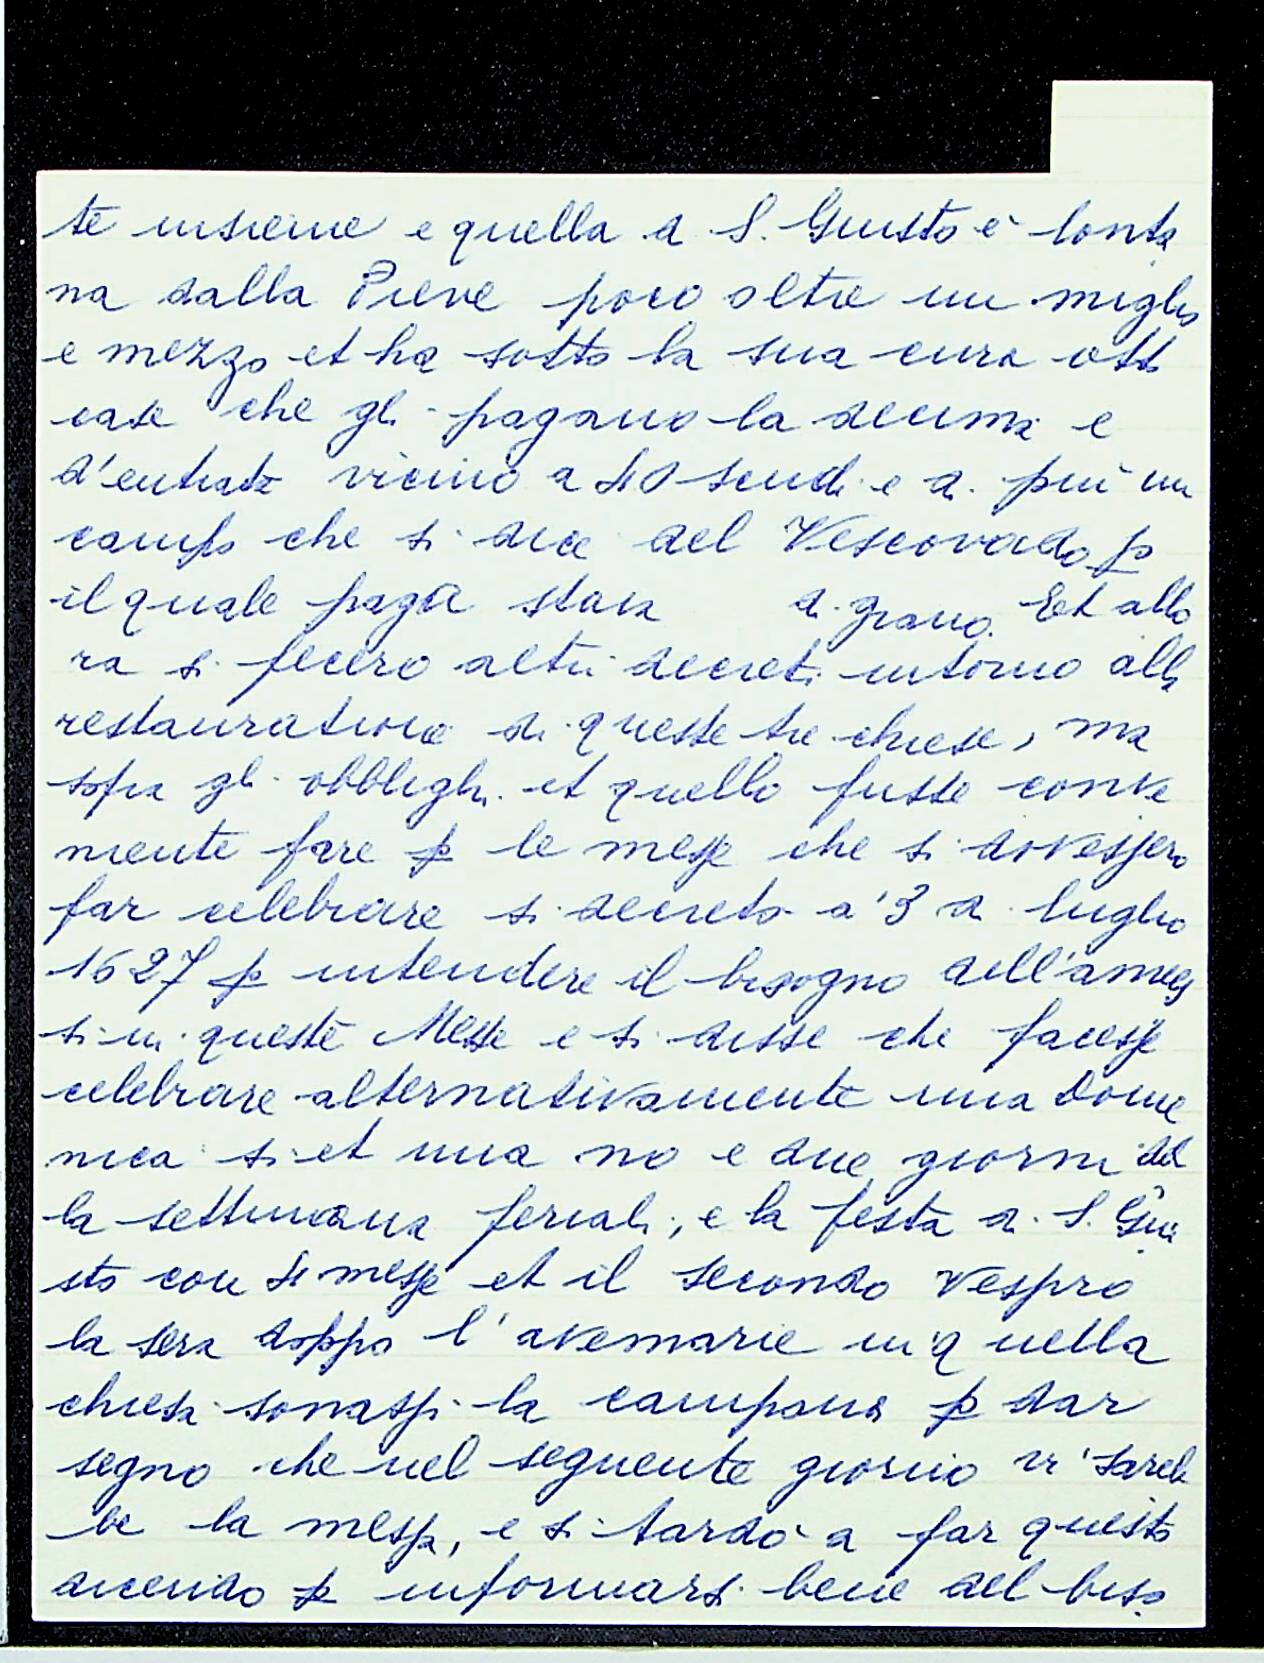 te insieme e quella di S. Giusto è lonta
na dalla Pieve poco oltre un miglio
e mezzo et ha sotto la sua cura otto
case che gli pagano la decima e
d'entrata vicino a 40 scudi e di più un
campo che si dice del Vescovado p
il quale paga staia di grano. Et allo
ra si fecero altri decreti intorno alla
restauratione di queste tre chiese, ma
sopra gli obblighi et quello fusse conve
niente fare p le messe che si dovessero
far celebrare si decretò a'3 di luglio
1627 p intendere il bisogno dell'
si in queste Messe e si disse che facesse
celebrare alternativamente una Dome
nica si et una no e due giorni del
la settimana feriali, e la festa di S. Giu
sto con 4 messe et il secondo Vespro
la sera doppo l'avemarie in quella
chiesa sonassi la campana p dar
segno che nel seguente giorno vi sareb
be la messa, e si tardò a far questo
dicendo p informarsi bene del biso